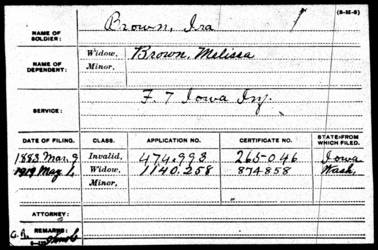 (3-M-6)
NAME OF SOLDIER: Brown, Ira
NAME OF DEPENDENT: Widow, Brown, Melissa
Minor,
SERVICE: F. 7 Iowa Inf.
DATE OF FILING. CLASS. APPLICATION NO. CERTIFICATE NO. STATE FROM WHICH FILED.
1883 Mar. 9 Invalid, 474.993 265.046 Iowa
1919 May 1. Widow, 1140.258 874858 Wash.
Minor,
ATTORNEY:
REMARKS: